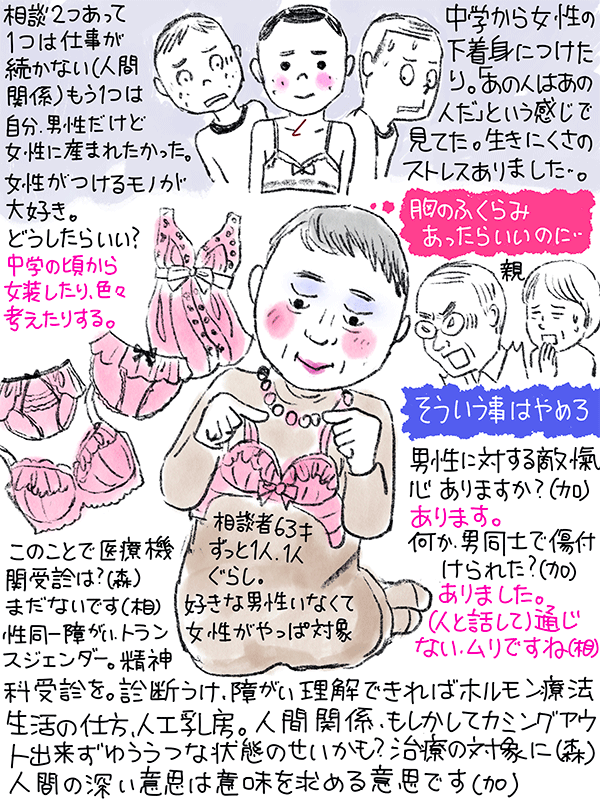 相談2つあって
1つは仕事が
続かない(人間
関係)もう1つは
自分、男性だけど
女性に産まれたかった。
女性がつけるモノが
大好き。
どうしたらいい?
中学の頃から
女装したり、色々
考えたりする。
中学から女性の
下着身につけた
り。「あの人はあの
人だ」という感じで
見てた。生きにくさの
ストレスありました…。
胸のふくらみ
あったらいいのに…
親
そういう事はやめろ
男性に対する敵愾
心ありますか?(加)
あります。
何か、男同士で傷付
けられた?(加)
ありました。
(人と話して)通じ
ない、ムリですね(相)
相談者63才
ずっと1人、1人
ぐらし。
好きな男性いなくて
女性がやっぱ対象
このことで医療機
関受診は?(森)
まだないです(相)
性同一障がい、トラン
スジェンダー。精神
科受診を。診断うけ、障がい理解できればホルモン療法
生活の仕方、人工乳房。人間関係、もしかしてカミングアウ
ト出来ずゆううつな状態のせいかも?治療の対象に(森)
人間の深い意思は意味を求める意思です(加)